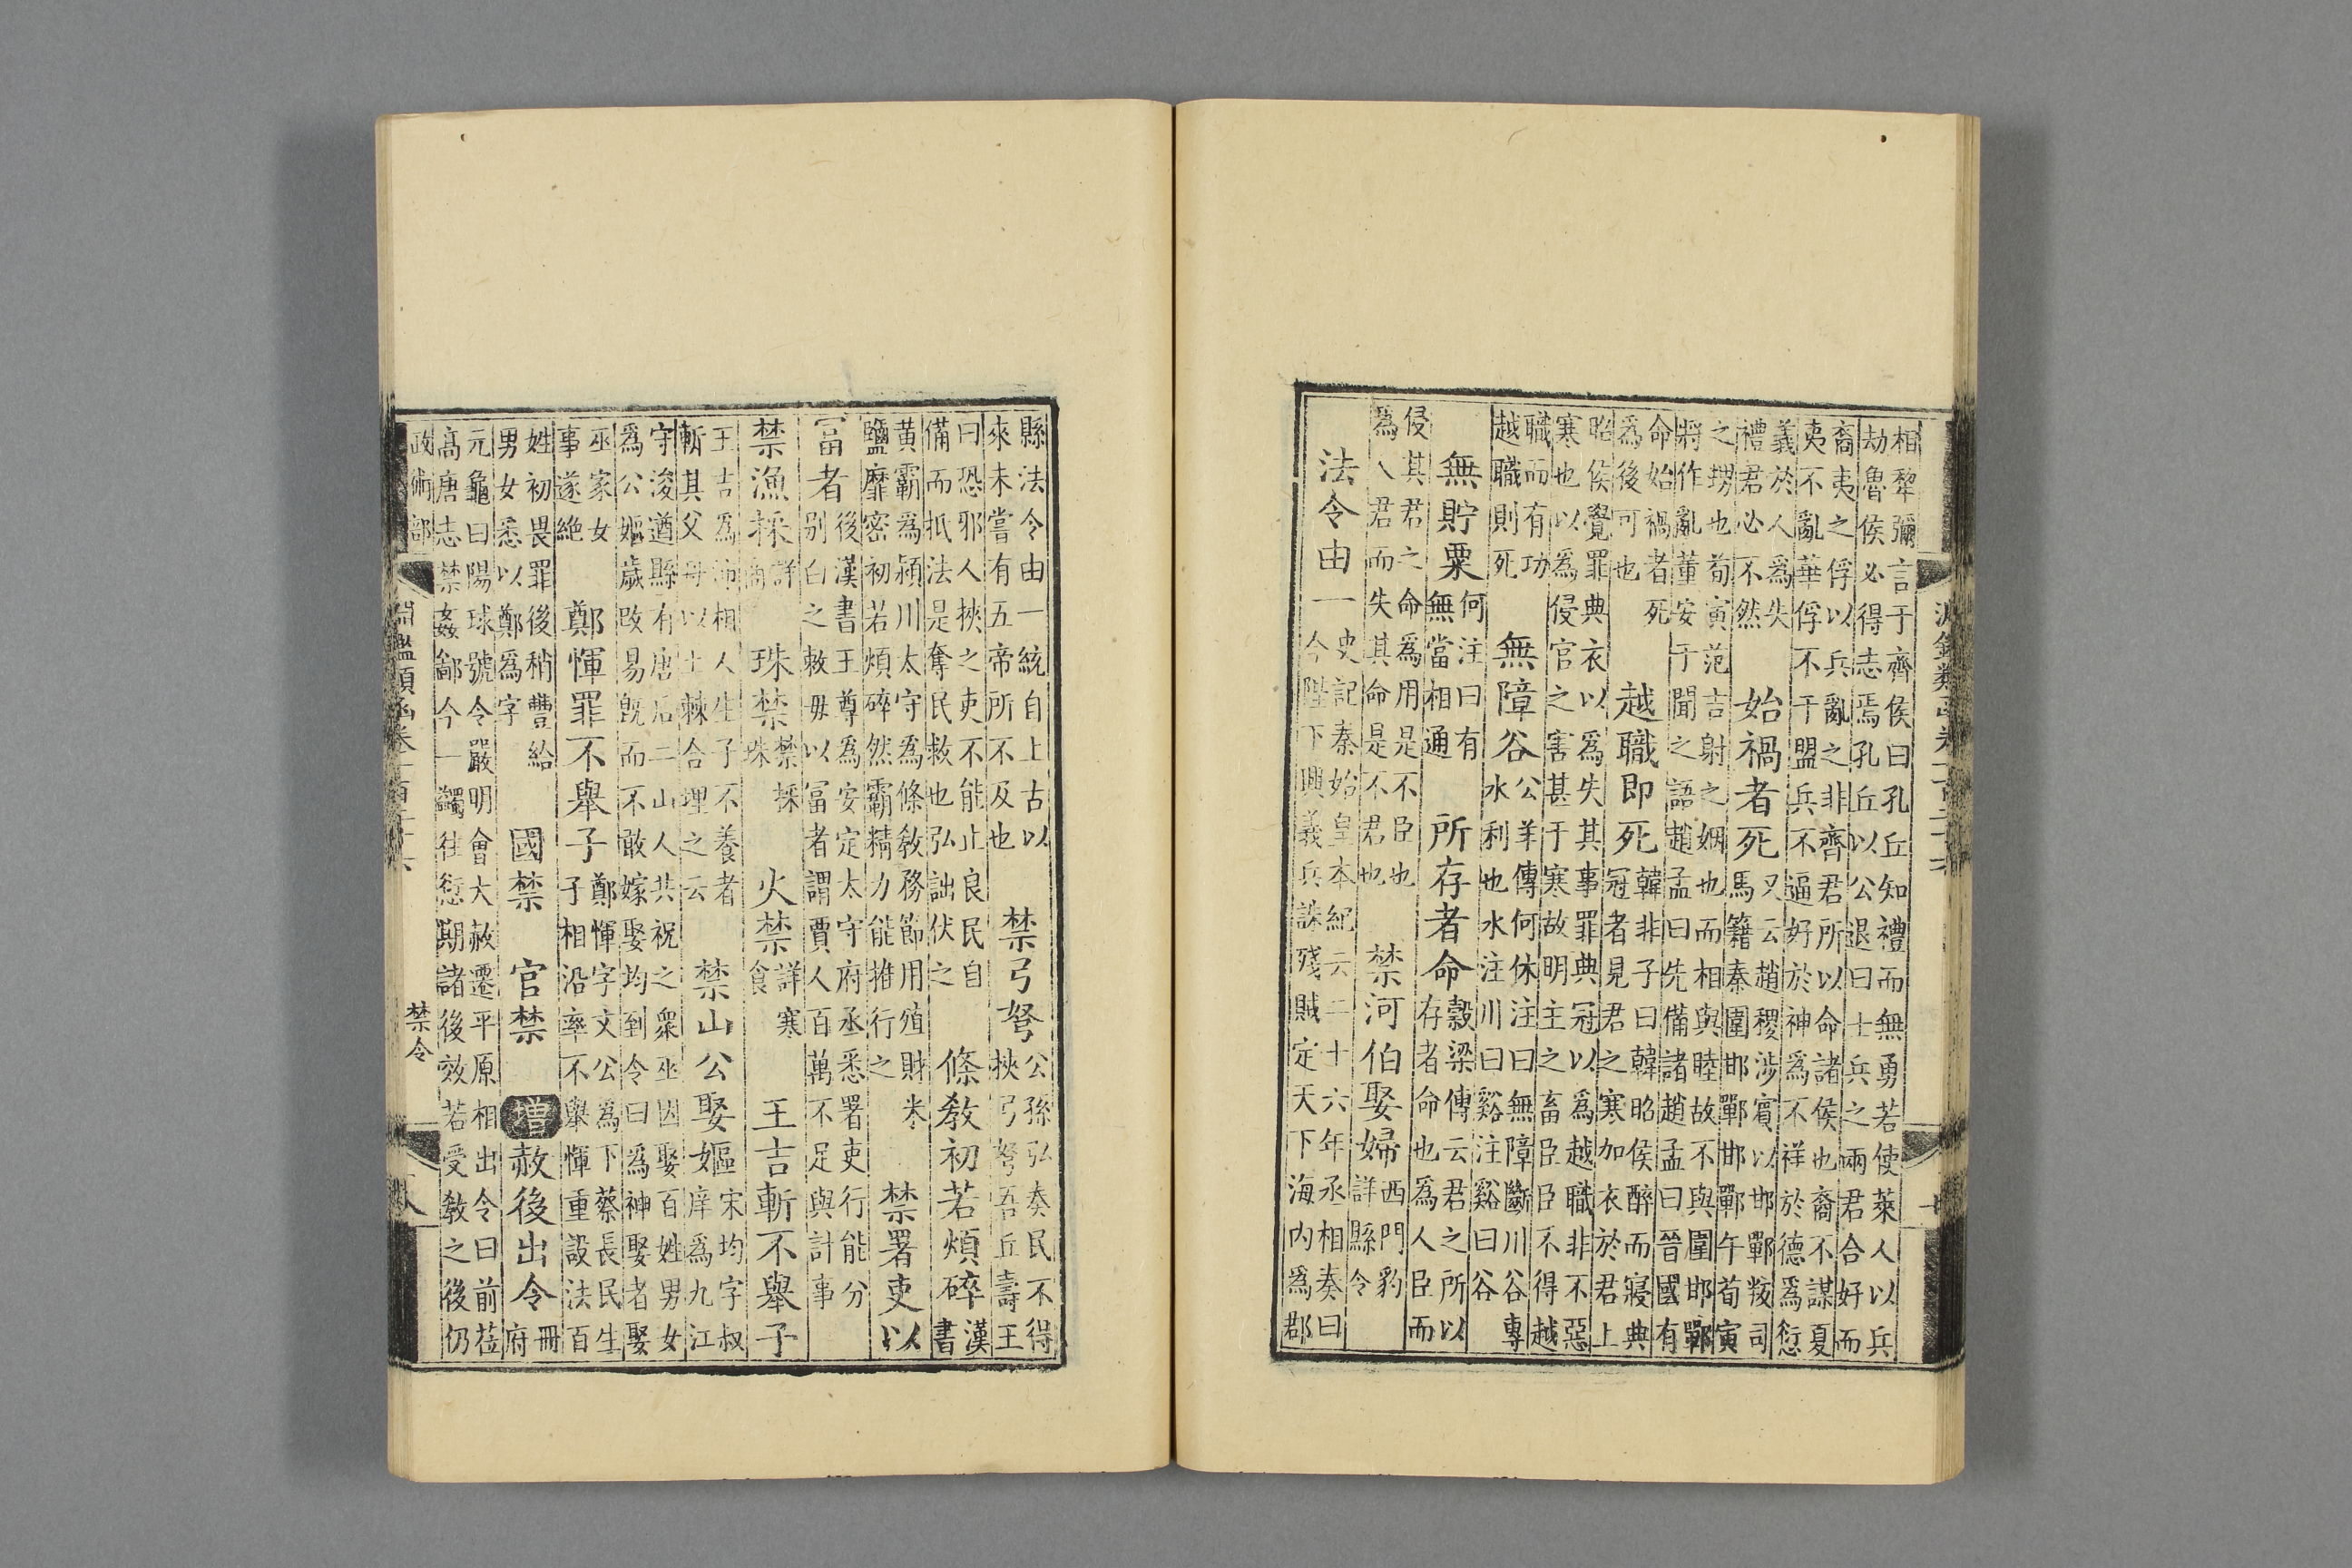 相犂彌言于齊侯曰孔丘知禮而無勇若使萊人以兵
劫魯侯必得志焉孔丘以公退曰士兵之兩君合好而
裔夷之俘以兵亂之非齊君所以命諸侯也裔不謀夏
夷不亂華俘不干盟兵不逼好於神為不祥於德為愆
義於人為失
禮君必不然
始禍者死
又云趙稷涉賓以邯鄲叛司
馬籍秦圍邯鄲邯鄲午荀寅
之甥也荀寅范吉射之姻也而相與睦故不與圍邯鄲
將作亂董安于聞之語趙孟曰先備諸趙孟曰晉國有
命始禍者死
為後可也
越職即死
韓非子曰韓昭侯醉而寢典
冠者見君之寒加衣於君上
昭侯覺罪典衣以為失其事罪典冠以為越職非不惡
寒也以為侵官之害甚于寒故明主之畜臣臣不得越
職而有功
越職則死
無障谷
公羊傳何休注曰無障斷川谷專
水利也水注川曰谿注谿曰谷
無貯粟
何注曰有
無當相通
所存者命
穀梁傳云君之所以
存者命也為人臣而
侵其君之命為用是不臣也
為人君而失其命是不君也
禁河伯娶婦
西門豹
詳縣令
法令由一
史記秦始皇本紀云二十六年丞相奏曰
今陛下興義兵誅殘賊定天下海內為郡
縣法令由一統自上古以
來未嘗有五帝所不及也
禁弓弩
公孫弘奏民不得
挾弓弩吾丘壽王
曰恐邪人挾之吏不能止良民自
備而抵法是奪民救也弘詘伏之
條教初若煩碎
漢
書
黃霸為潁川太守為條教務節用殖財米
鹽靡密初若煩碎然霸精力能推行之
禁署吏以
富者
後漢書王尊為安定太守府丞悉署吏行能分
別白之敕毋以富者謂賈人百萬不足與計事
禁漁採
詳
珠禁
禁採
珠
火禁
詳寒
食
王吉斬不舉子
王吉為沛相人生子不養者
斬其父母以土棘合埋之云
禁山公娶嫗
宋均字叔
庠為九江
守浚遒縣有唐后二山人共祝之衆巫因娶百姓男女
為公嫗歲改易既而不敢嫁娶均到令曰為神娶者娶
巫家女
事遂絕
鄭惲罪不舉子
鄭惲字文公為下蔡長民生
子相沿率不舉惲重設法百
姓初畏罪後稍豐給
男女悉以鄭為字
國禁
官禁
增
赦後出令
冊
府
元龜曰陽球號令嚴明會大赦遷平原相出令曰前莅
高唐志禁姦鄙今一蠲往愆期諸後效若受教之後仍
政術部
淵鑑類函卷一百二十六
禁令
八